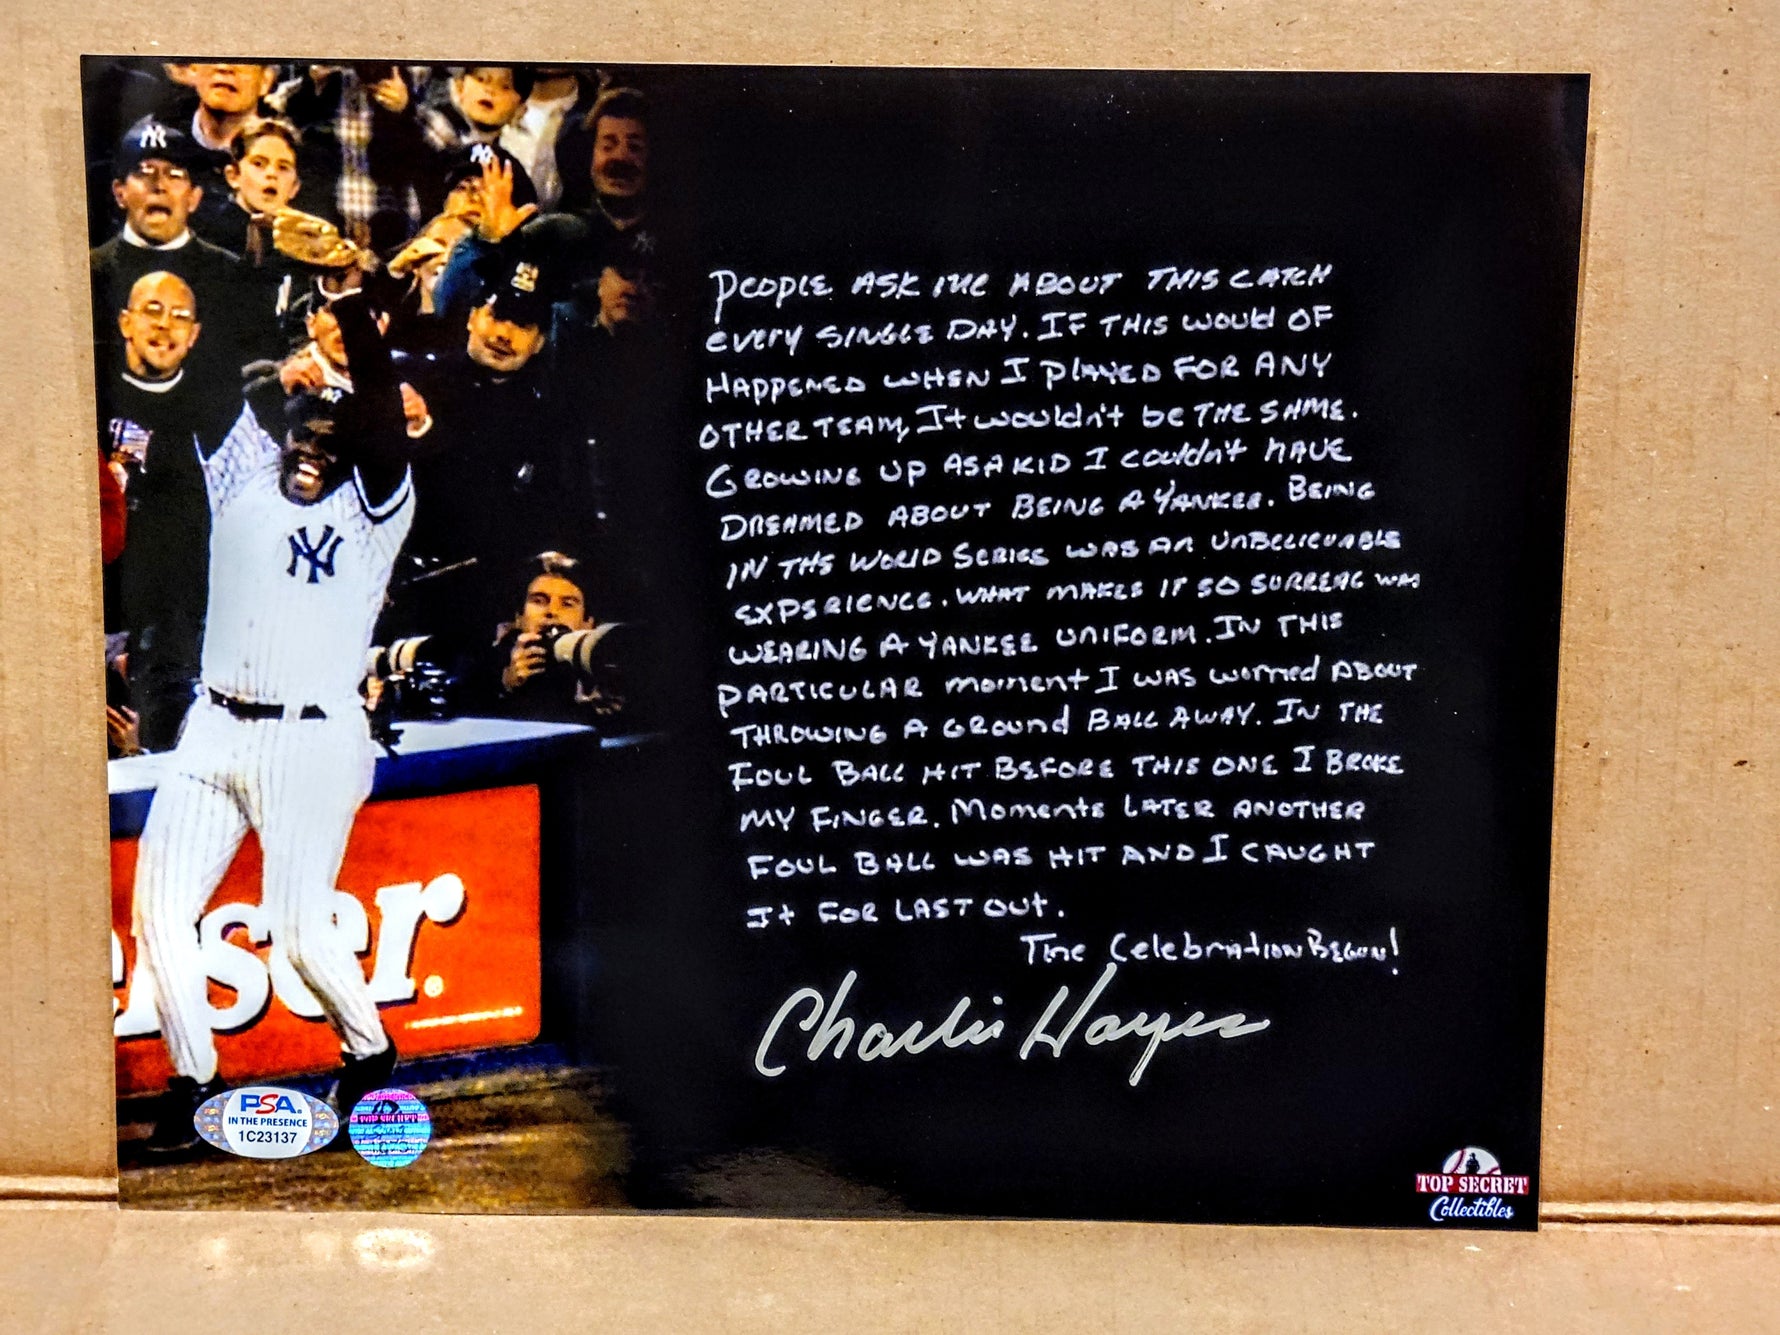 People ask me about this catch
every single day. If this would of
happened when I played for any
other team, It wouldn't be the same.
Growing up as a kid I couldn't have
dreamed about being a Yankee. Being
in the World Series was an unbelievable
experience. What makes it so surreal was
wearing a Yankee uniform. In this
particular moment I was worried about
throwing a ground ball away. In the
foul ball hit before this one I broke
my finger. Moments later another
foul ball was hit and I caught
It for last out.
The Celebration Began!
Charlie Hayes
NY
NY
NY
eiser.®
PSA®
IN THE PRESENCE
1C23137
TOP SECRET
TOP SECRET
Collectibles